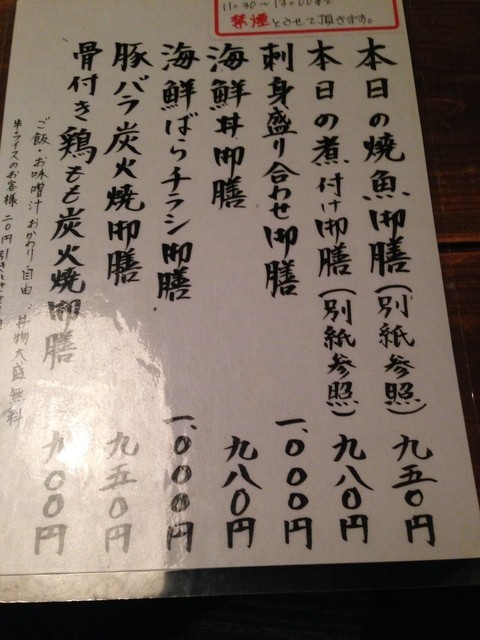 禁煙とさせて頂きます。
本日の焼魚御膳(別紙参照) 九五0円
本日の煮付け御膳(別紙参照) 九八0円
刺身盛り合わせ御膳 一、000円
海鮮丼御膳 九八0円
海鮮ばらチラシ御膳 一、000円
豚バラ炭火焼御膳 九五0円
骨付き鶏もも炭火焼御膳 九00円
ご飯・お味噌汁おかわり自由・丼物大盛無料
半ライスのお客様 二0円引き